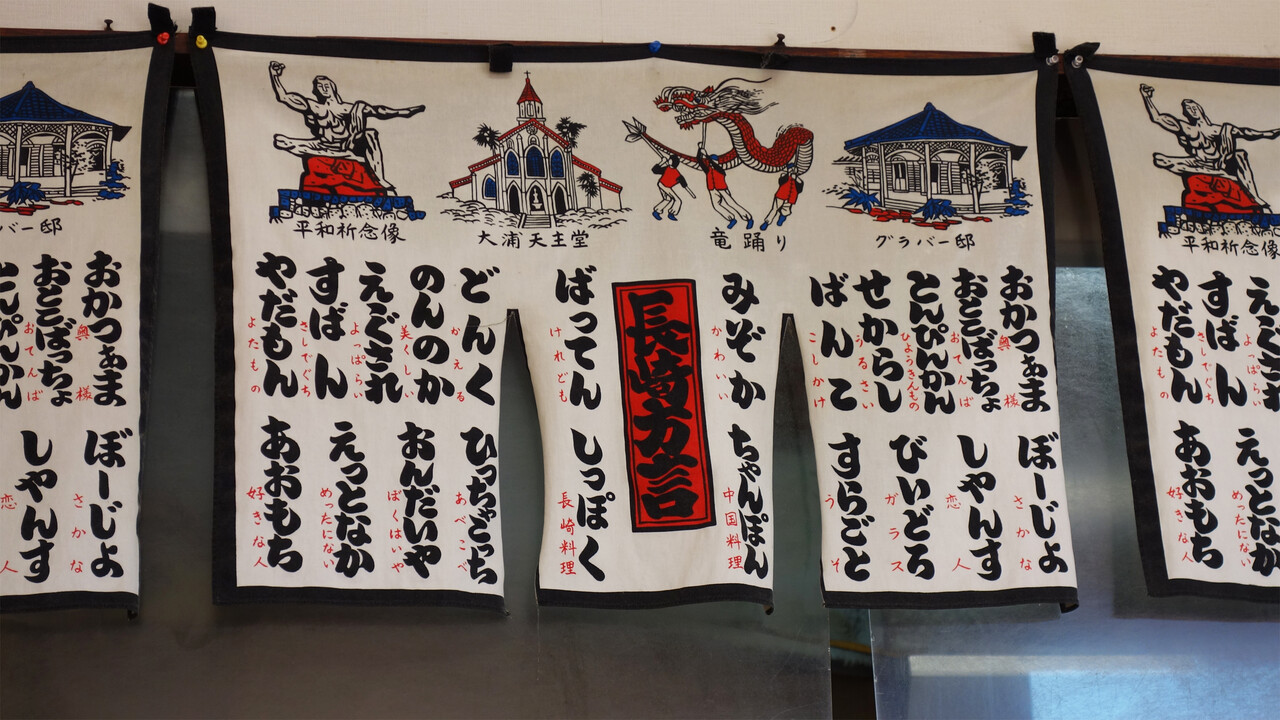 平和祈念像
大浦天主堂
竜踊り
グラバー邸
おかつぁま
奥様
おとこばっちょ
おてんば
とんぴんかん
ひょうきんもの
せからし
うるさい
ばんこ
こしかけ
みぞか
かわいい
長崎方言
ばってん
けれども
どんく
かえる
のんのか
美くしい
えぐされ
よっぱらい
すばん
さしでぐち
やだもん
よたもの
ぼーじょ
さかな
しゃんす
恋人
びいどろ
ガラス
すらごと
うそ
ちゃんぽん
中国料理
しっぽく
長崎料理
ひっちゃごっち
あべこべ
おんだいや
ぼくはいや
えっとなか
めったにない
あおもち
好きな人
バー邸
おかつぁま
奥様
おとこばっちょ
おてんば
とんぴんかん
ぼーじょ
さかな
しゃんす
恋人
平和祈念像
えぐされ
よっぱらい
すばん
さしでぐち
やだもん
よたもの
えっとなか
めったにない
あおもち
好きな人